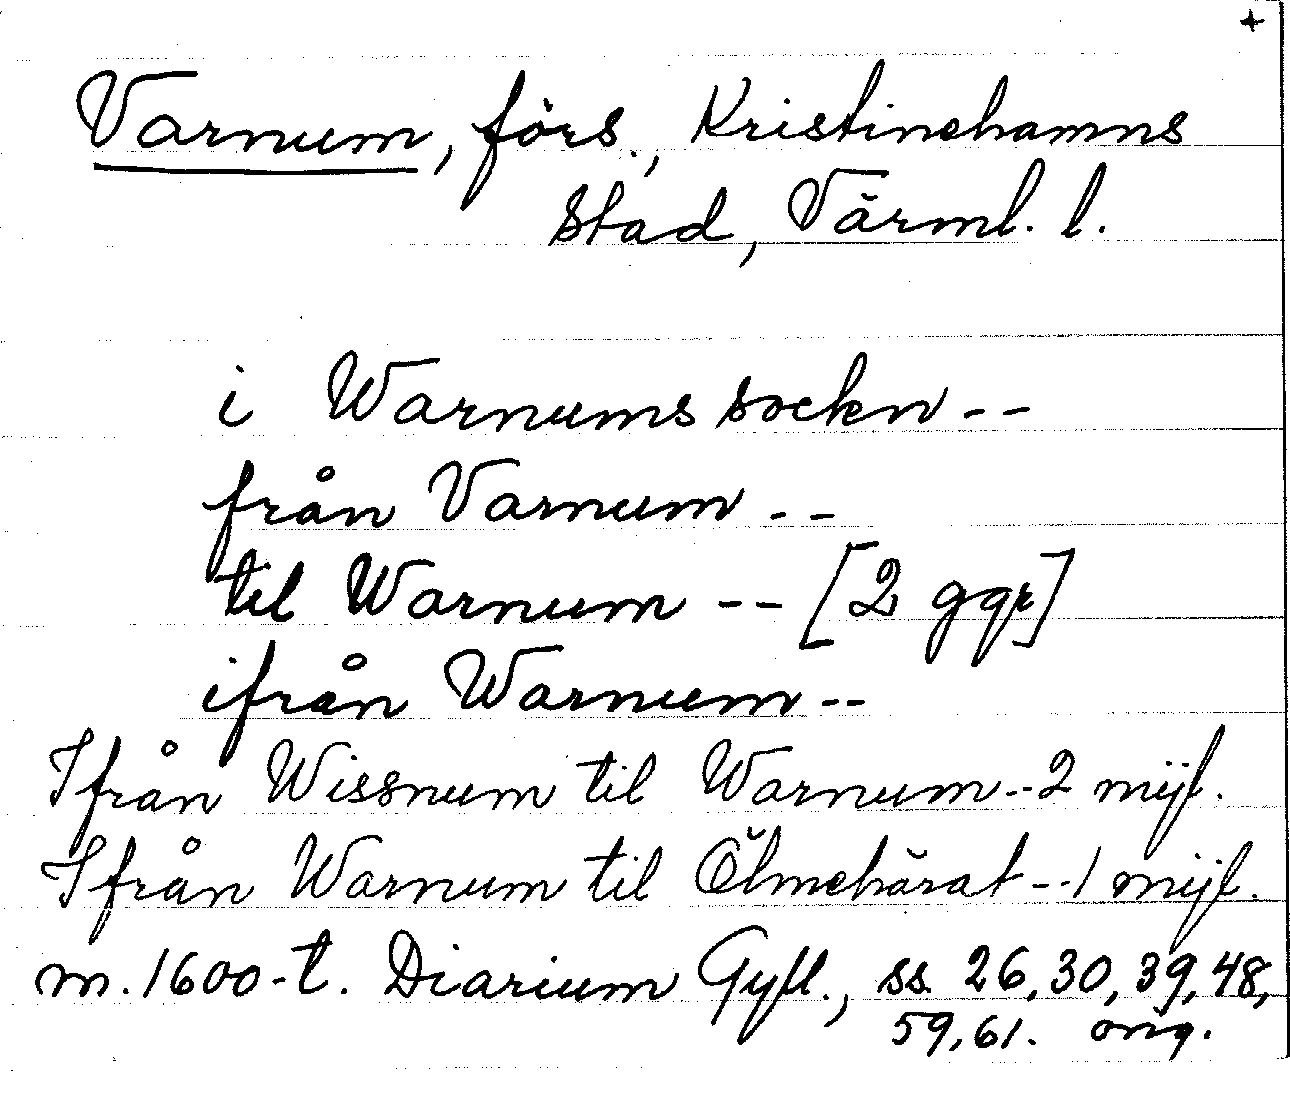 +
Varnum, förs., Kristinehamns
stad, Värml. l.
i Warnums sockn --
från Varnum --
til Warnum -- [2 ggr]
ifrån Warnum --
Ifrån Wissnum til Warnum -- 2 mijl.
Ifrån Warnum til Ölmehärat -- 1 mijl.
m. 1600-t. Diarium Gyll., ss. 26, 30, 39, 48,
59, 61. orig.